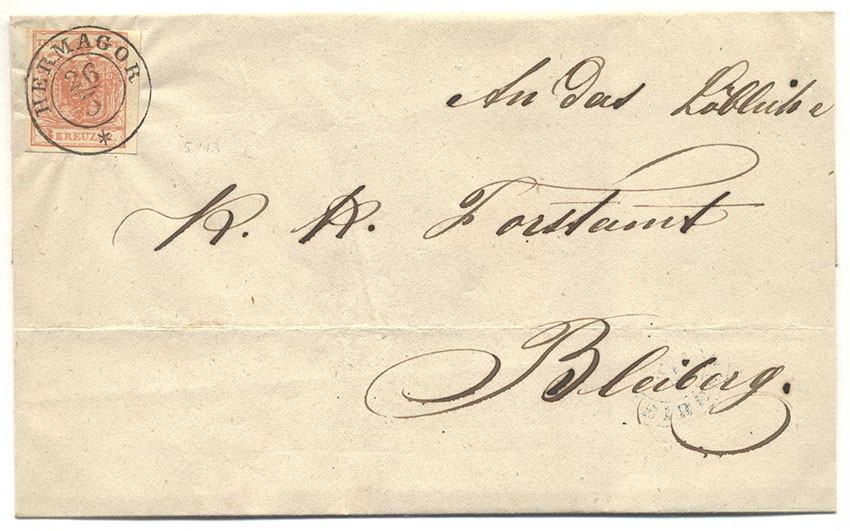 HERMAGOR
26
5
KREUZER
An das Löbliche
K. K. Forstamt
Bleiberg.